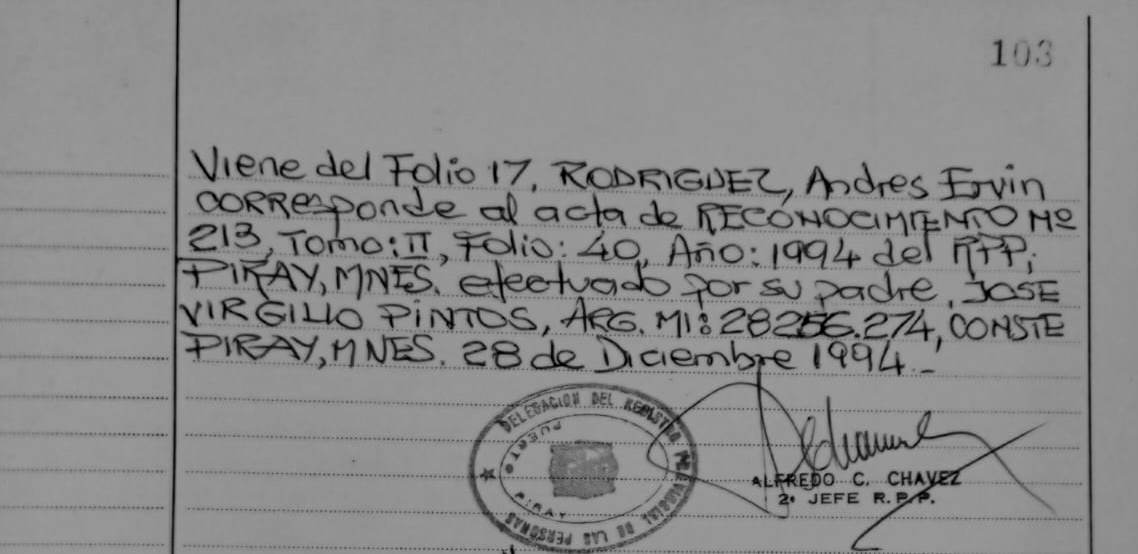 103
Viene del Folio 17. RODRIGUEZ, Andres Ervin
CORResponde al acta de RECONOCIMIENTO Nº
213, Tomo: II, Folio: 40, Año: 1994 del RPP;
PIRAY, MNES. efectuado por su padre, JOSE
VIRGILIO PINTOS, ARG. MI: 28256.274, CONSTE
PIRAY, MNES. 28 de Diciembre 1994._
DELEGACION DEL REGISTRO PROVINCIAL DE LAS PERSONAS
PUERTO PIRAY
ALFREDO C. CHAVEZ
2º JEFE R.P.P.